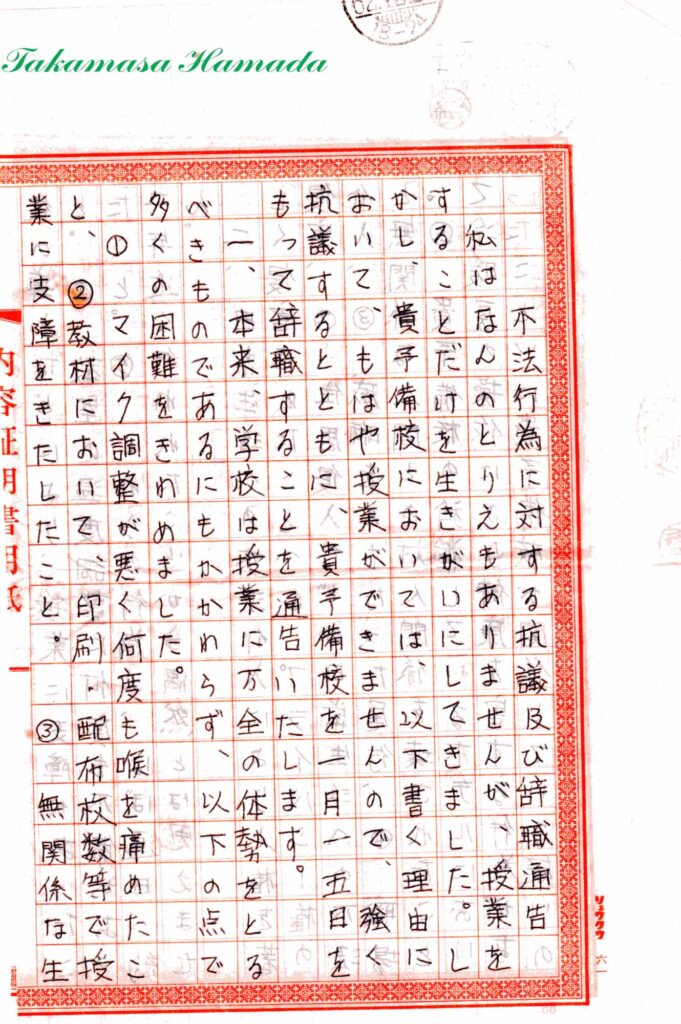 Takamasa Hamada
不法行為に対する抗議及び辞職通告
私はなんのとりえもありませんが、授業を
することだけを生きがいにしてきました。し
かし、貴予備校においては、以下書く理由に
おいて、もはや授業ができませんので、強く
抗議するとともに、貴予備校を一月一五日を
もって辞職することを通告いたします。
一、本来、学校は授業に万全の体勢をとる
べきものであるにもかかわらず、以下の点で
多くの困難をきわめました。
①マイク調整が悪く何度も喉を痛めたこ
と、②教材において、印刷・配布枚数等で授
業に支障をきたしたこと。③無関係な生
内容証明書用紙
リュウクワ